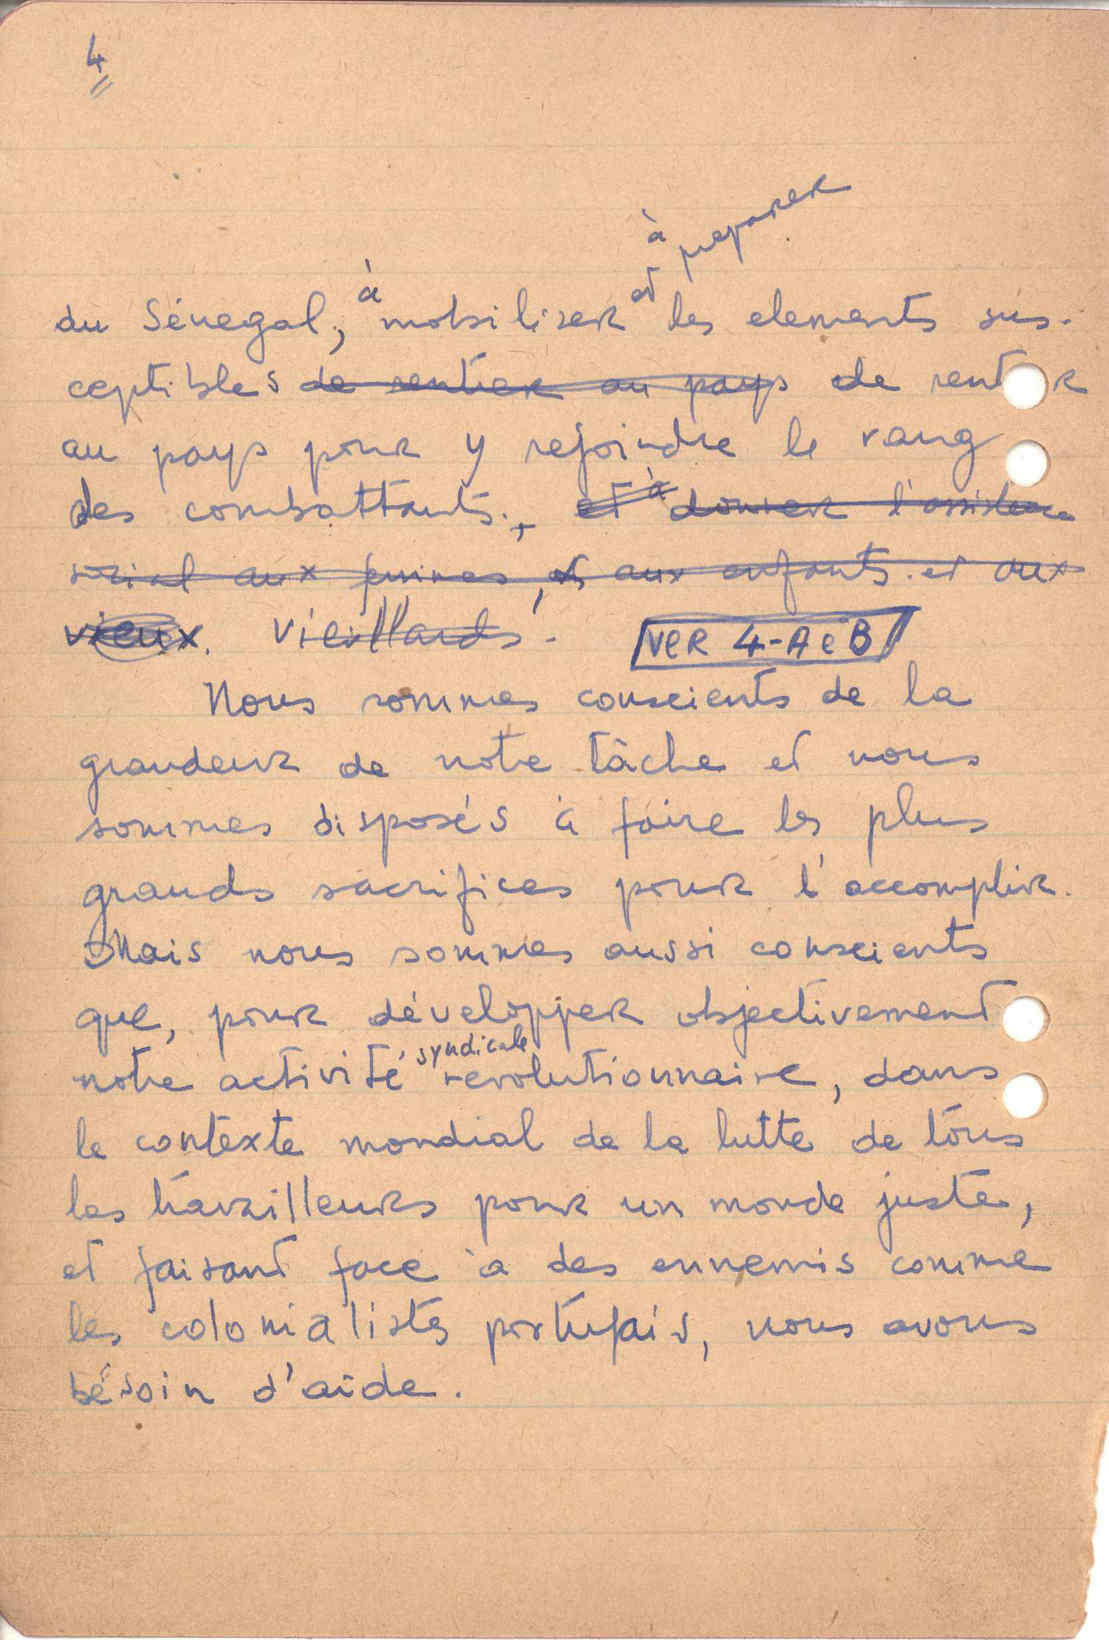 4
à preparer
du Sénegal, à mobiliser et les elements sus-
ceptibles de rentrer au pays de rentrer
au pays pour y rejoindre le rang
des combattants., et à donner l'assistence
social aux femmes, et aux enfants. et aux
vieux. vieillards.
VER 4-A e B
Nous sommes conscients de la
grandeur de notre tâche et nous
sommes disposés à faire les plus
grands sacrifices pour l'accomplir.
Mais nous sommes aussi conscients
que, pour développer objectivement
notre activité syndicale revolutionnaire, dans
le contexte mondial de la lutte de tous
les travailleurs pour un monde juste,
et faisant face à des ennemis comme
les colonialistes portugais, nous avons
bésoin d'aide.